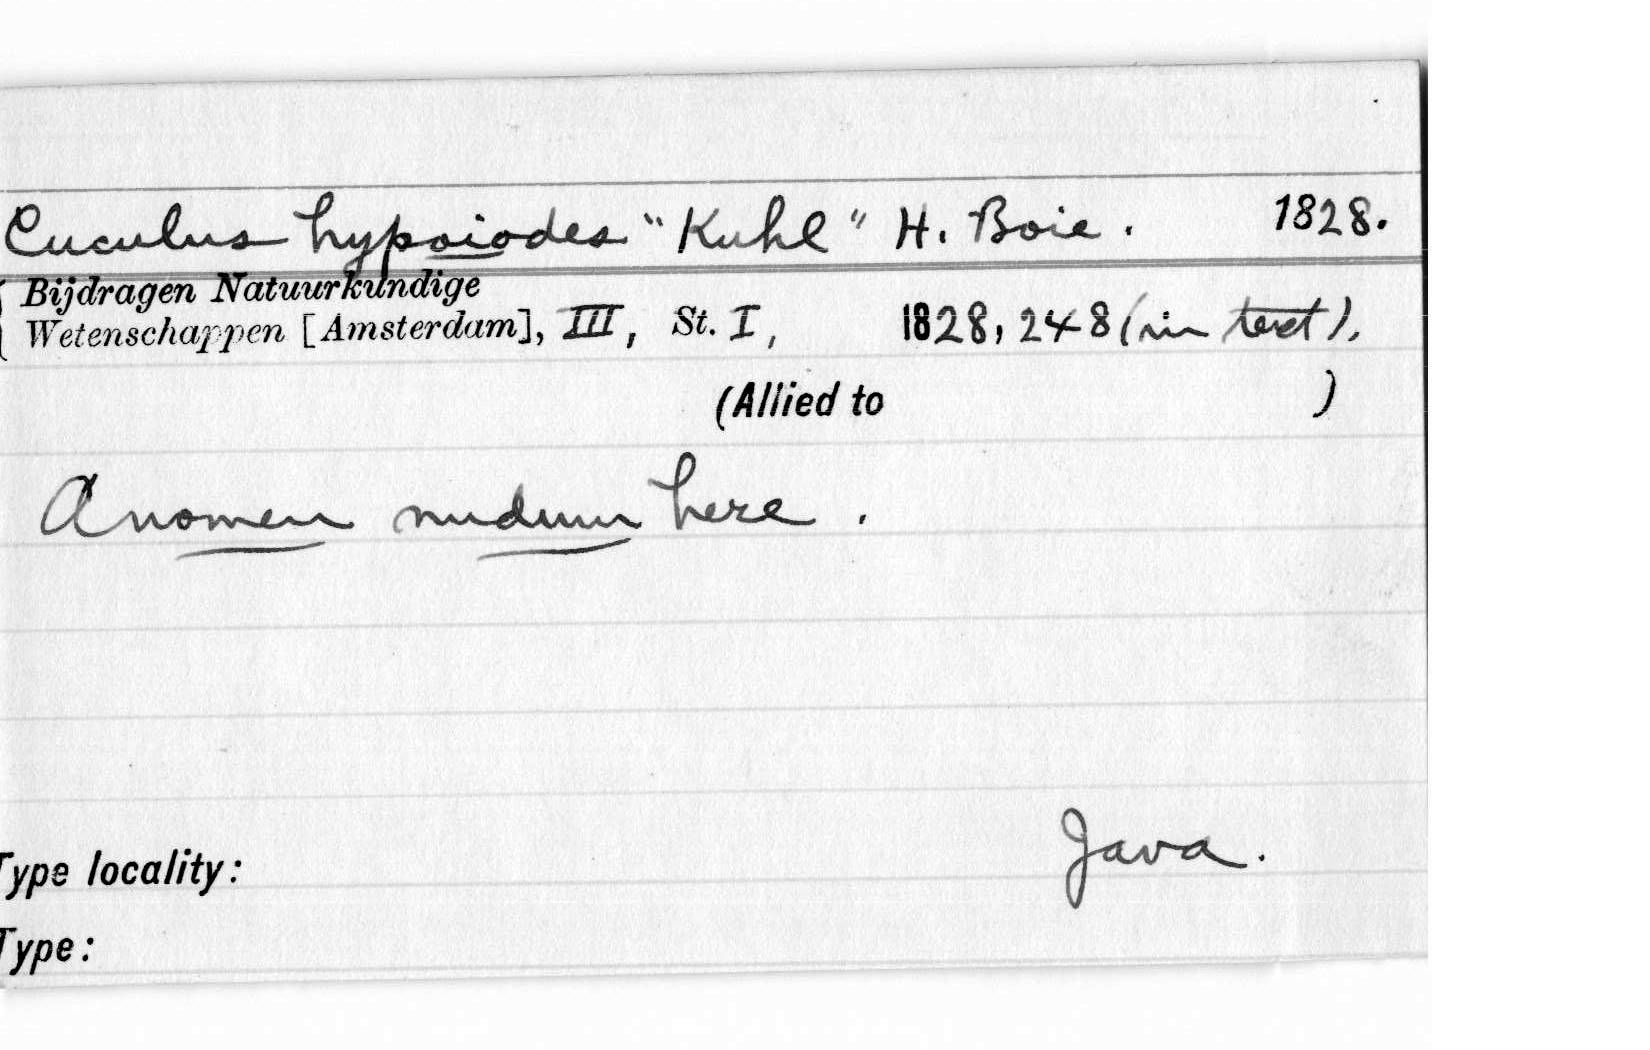 Cuculus hypoiodes "Kuhl" H. Boie. 1828.
Bijdragen Natuurkundige
Wetenschappen [Amsterdam], III, St. I, 1828, 248 (in text).
(Allied to )
A nomen nudum here.
Java.
Type locality:
Type: